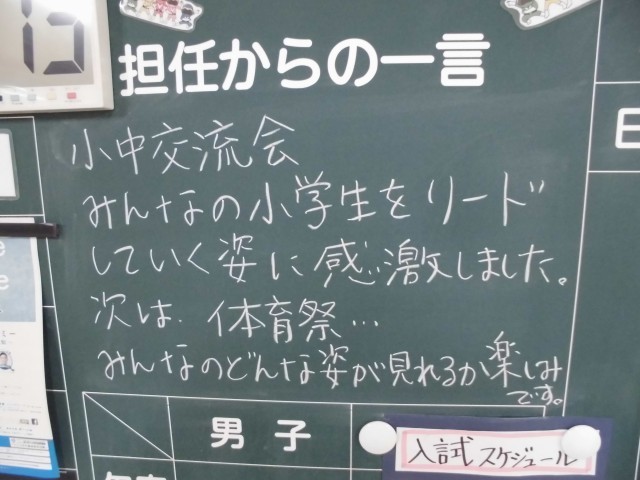 担任からの一言
小中交流会
みんなの小学生をリード
していく姿に感激しました。
次は、体育祭…
みんなのどんな姿が見れるか楽しみ
です。
男子
入試スケジュール